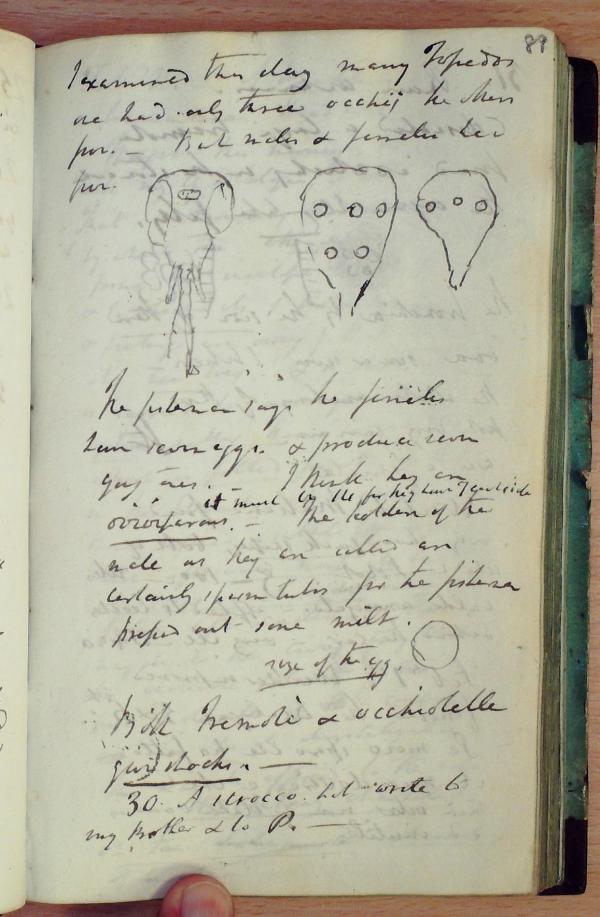 89
I examined this day many Torpedos
one had only three occhij the others
five. — Both males & females had
five.
The fisherman says the females
have seven eggs. & produce seven
young ones. — I think they are
it must be the for they have 7 outside
ovoviparous. — The holders of the
male as they are called are
certainly sperm tubes for the fisherman
pressed out some milt.
size of the egg.
Both Tremole & occhiatelle
give shocks. —
30. A scirocco. hot wrote to
my Brother & to P. —